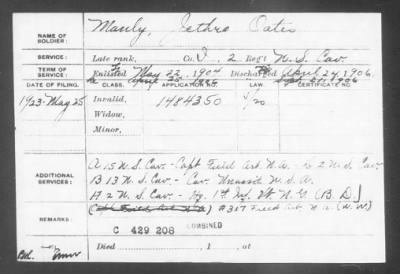 NAME OF SOLDIER: Manly, Jethro Oates
SERVICE: Late rank, Co. I, 2 Reg't U.S. Cav.
TERM OF SERVICE: Enlisted May 22, 1904 Discharged April 24, 1906
DATE OF FILING. CLASS. APPLICATION NO. LAW. CERTIFICATE NO.
1923-May 25 Invalid, 1484350
Widow,
Minor,
A 15 U.S. Cav. - Capt Field Art. N.A. - L 2 U.S. Cav.
ADDITIONAL SERVICES: B 13 U.S. Cav. - Cav. Unassd U.S.A.
H 2 U.S. Cav - Hq. 1st Inf. Vt. N.G. (B.D.)
(Capt Field Art N.A.) #317 Field Art. N.A. (W.W.)
REMARKS: C 429 208 COMBINED
Died , 1 , at